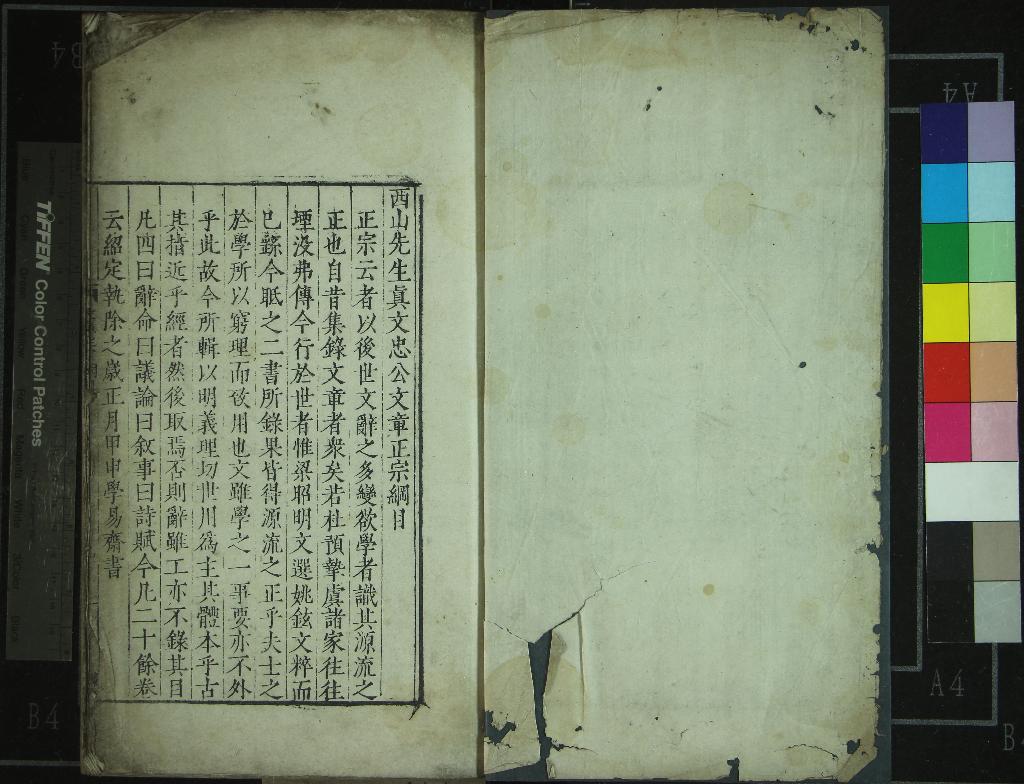 西山先生眞文忠公文章正宗綱目
正宗云者以後世文辭之多變欲學者識其源流之
正也自昔集錄文章者衆矣若杜預摯虞諸家往往
堙没弗傳今行於世者惟梁昭明文選姚鉉文粹而
已繇今眡之二書所錄果皆得源流之正乎夫士之
於學所以窮理而致用也文雖學之一事要亦不外
乎此故今所輯以明義理切世用爲主其體本乎古
其指近乎經者然後取焉否則辭雖工亦不錄其目
凡四曰辭命曰議論曰叙事曰詩賦今凡二十餘卷
云紹定執除之歲正月甲申學易齋書
TIFFEN Color Control Patches
B4
B4
A4
A4
B